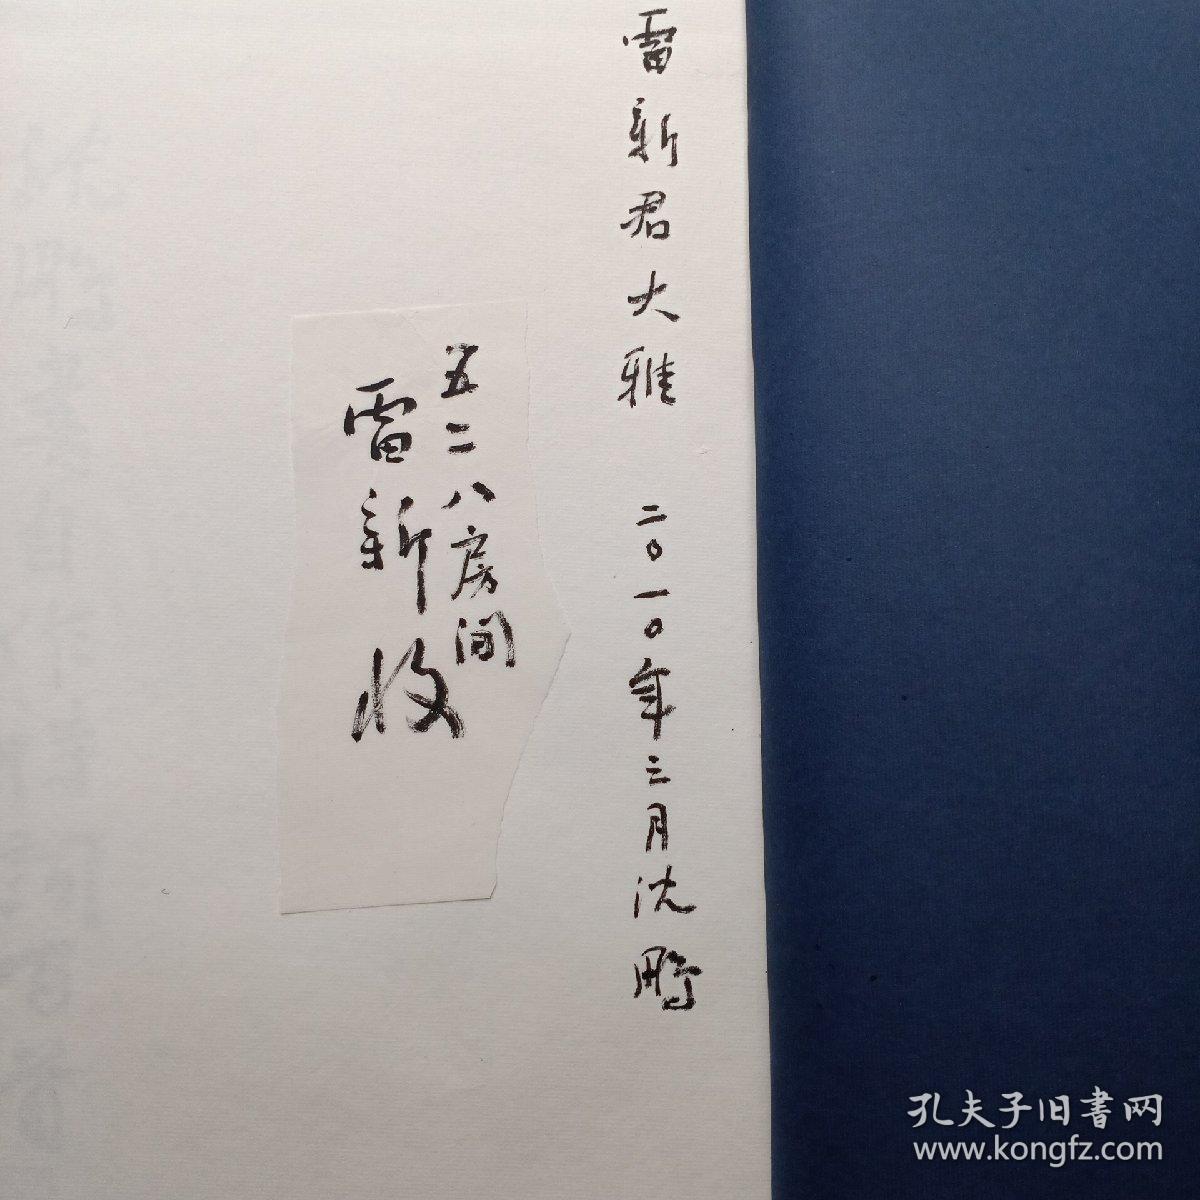 雷新君大雅 二〇一〇年三月沈鹏
五二八房间
雷新收
孔夫子旧書网
www.kongfz.com